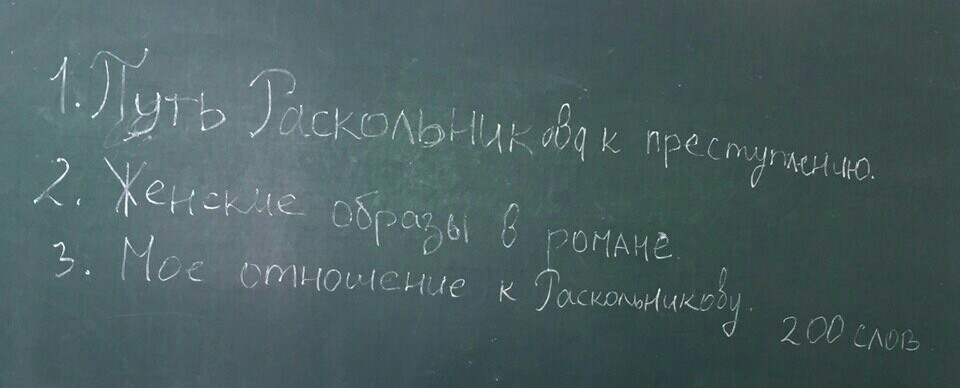 1. Путь Раскольникова к преступлению.
2. Женские образы в романе.
3. Мое отношение к Раскольникову.
200 слов